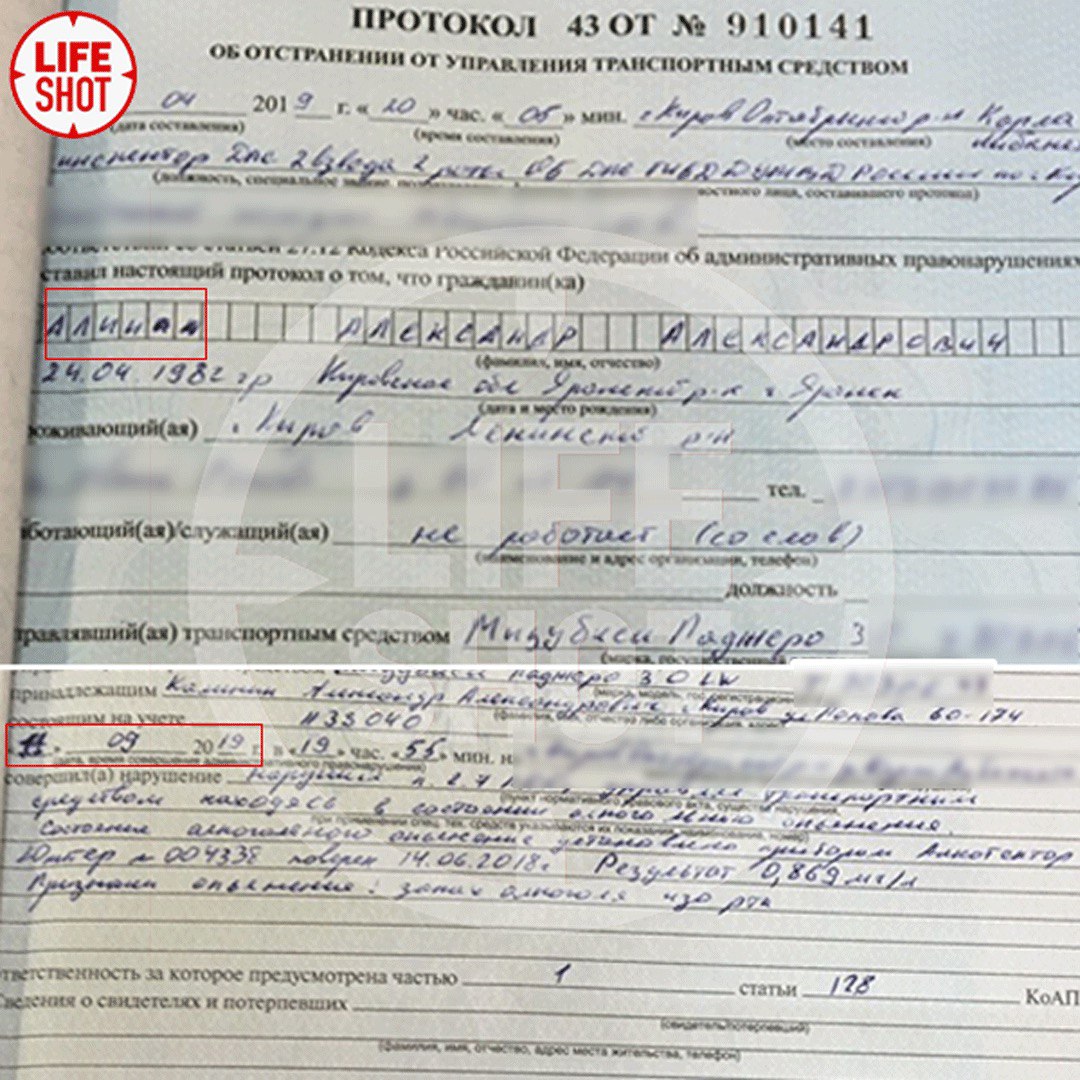 LIFE
SHOT
ПРОТОКОЛ 43 ОТ № 910141
ОБ ОТСТРАНЕНИИ ОТ УПРАВЛЕНИЯ ТРАНСПОРТНЫМ СРЕДСТВОМ
04 2019 г. «20» час. «05» мин. г Киров Октябрьский р-н Карла
(дата составления) (время составления) (место составления)
инспектор ДПС 2 взвода 2 роты ОБ ДПС ГИБДД УМВД России по г Ки
(должность, специальное звание, остного лица, составившего протокол)
оответствии со статьей 27.12 Кодекса Российской Федерации об административных правонарушениях
ставил настоящий протокол о том, что гражданин(ка)
АЛЕКСАНДР АЛЕКСАНДРОВИЧ
(фамилия, имя, отчество)
24.04.1982 гр Кировская обл Яранский р-н г Яранск
(дата и место рождения)
оживающий(ая) г Киров Ленинский р-н
тел.
ботающий(ая)/служащий(ая) не работает (со слов)
(наименование и адрес организации, телефон)
должность
травлявший(ая) транспортным средством Мицубиси Паджеро 3
(марка, государственный
паджеро 3.0 LW
принадлежащим Калинин Александр Александрович г Киров ул Попова 60-174
состоящим на учете 1133040
«11» 09 2019 г. в «19» час. «55» мин. н
(дата, время совершения административного правонарушения)
совершил(а) нарушение нарушил п. 2.7 управлял транспортным
средством находясь в состоянии алкогольного опьянения.
Состояние алкогольного опьянения установлено прибором Алкотектор
Юпитер № 004338 поверен 14.06.2018г Результат 0,869 мг/л
Признаки опьянения: запах алкоголя изо рта
тветственность за которое предусмотрена частью 1 статьи 128 КоАП
Сведения о свидетелях и потерпевших
(свидетель/потерпевший)
(фамилия, имя, отчество, адрес места жительства, телефон)
LIFE
SHOT